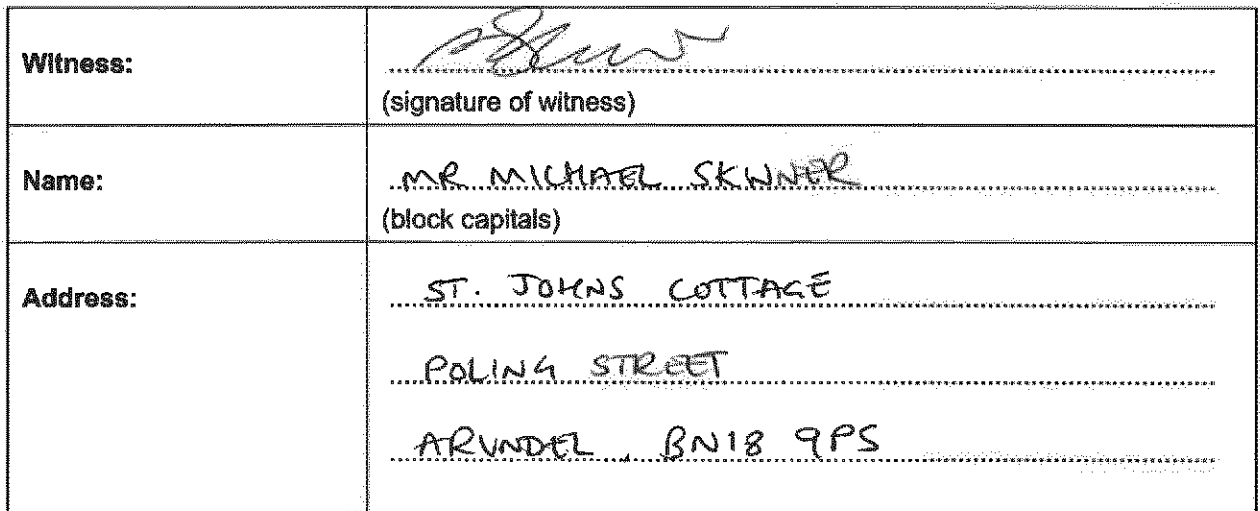 Witness:
(signature of witness)
Name:
MR MICHAEL SKINNER
(block capitals)
Address:
ST. JOHNS COTTAGE
POLING STREET
ARUNDEL, BN18 9PS